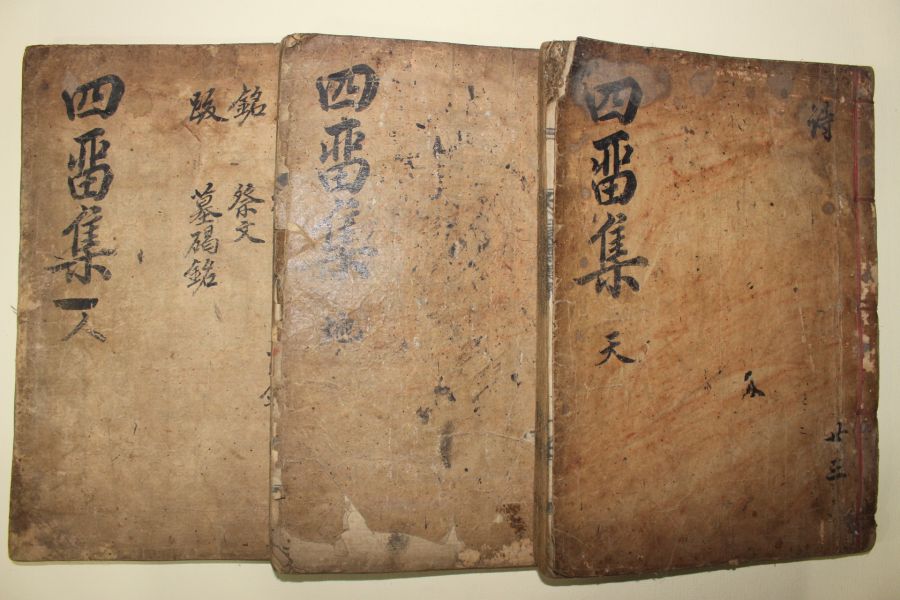 詩
廿三
四畱集 天
四畱集 地
銘 祭文
跋 墓碣銘
四畱集 人